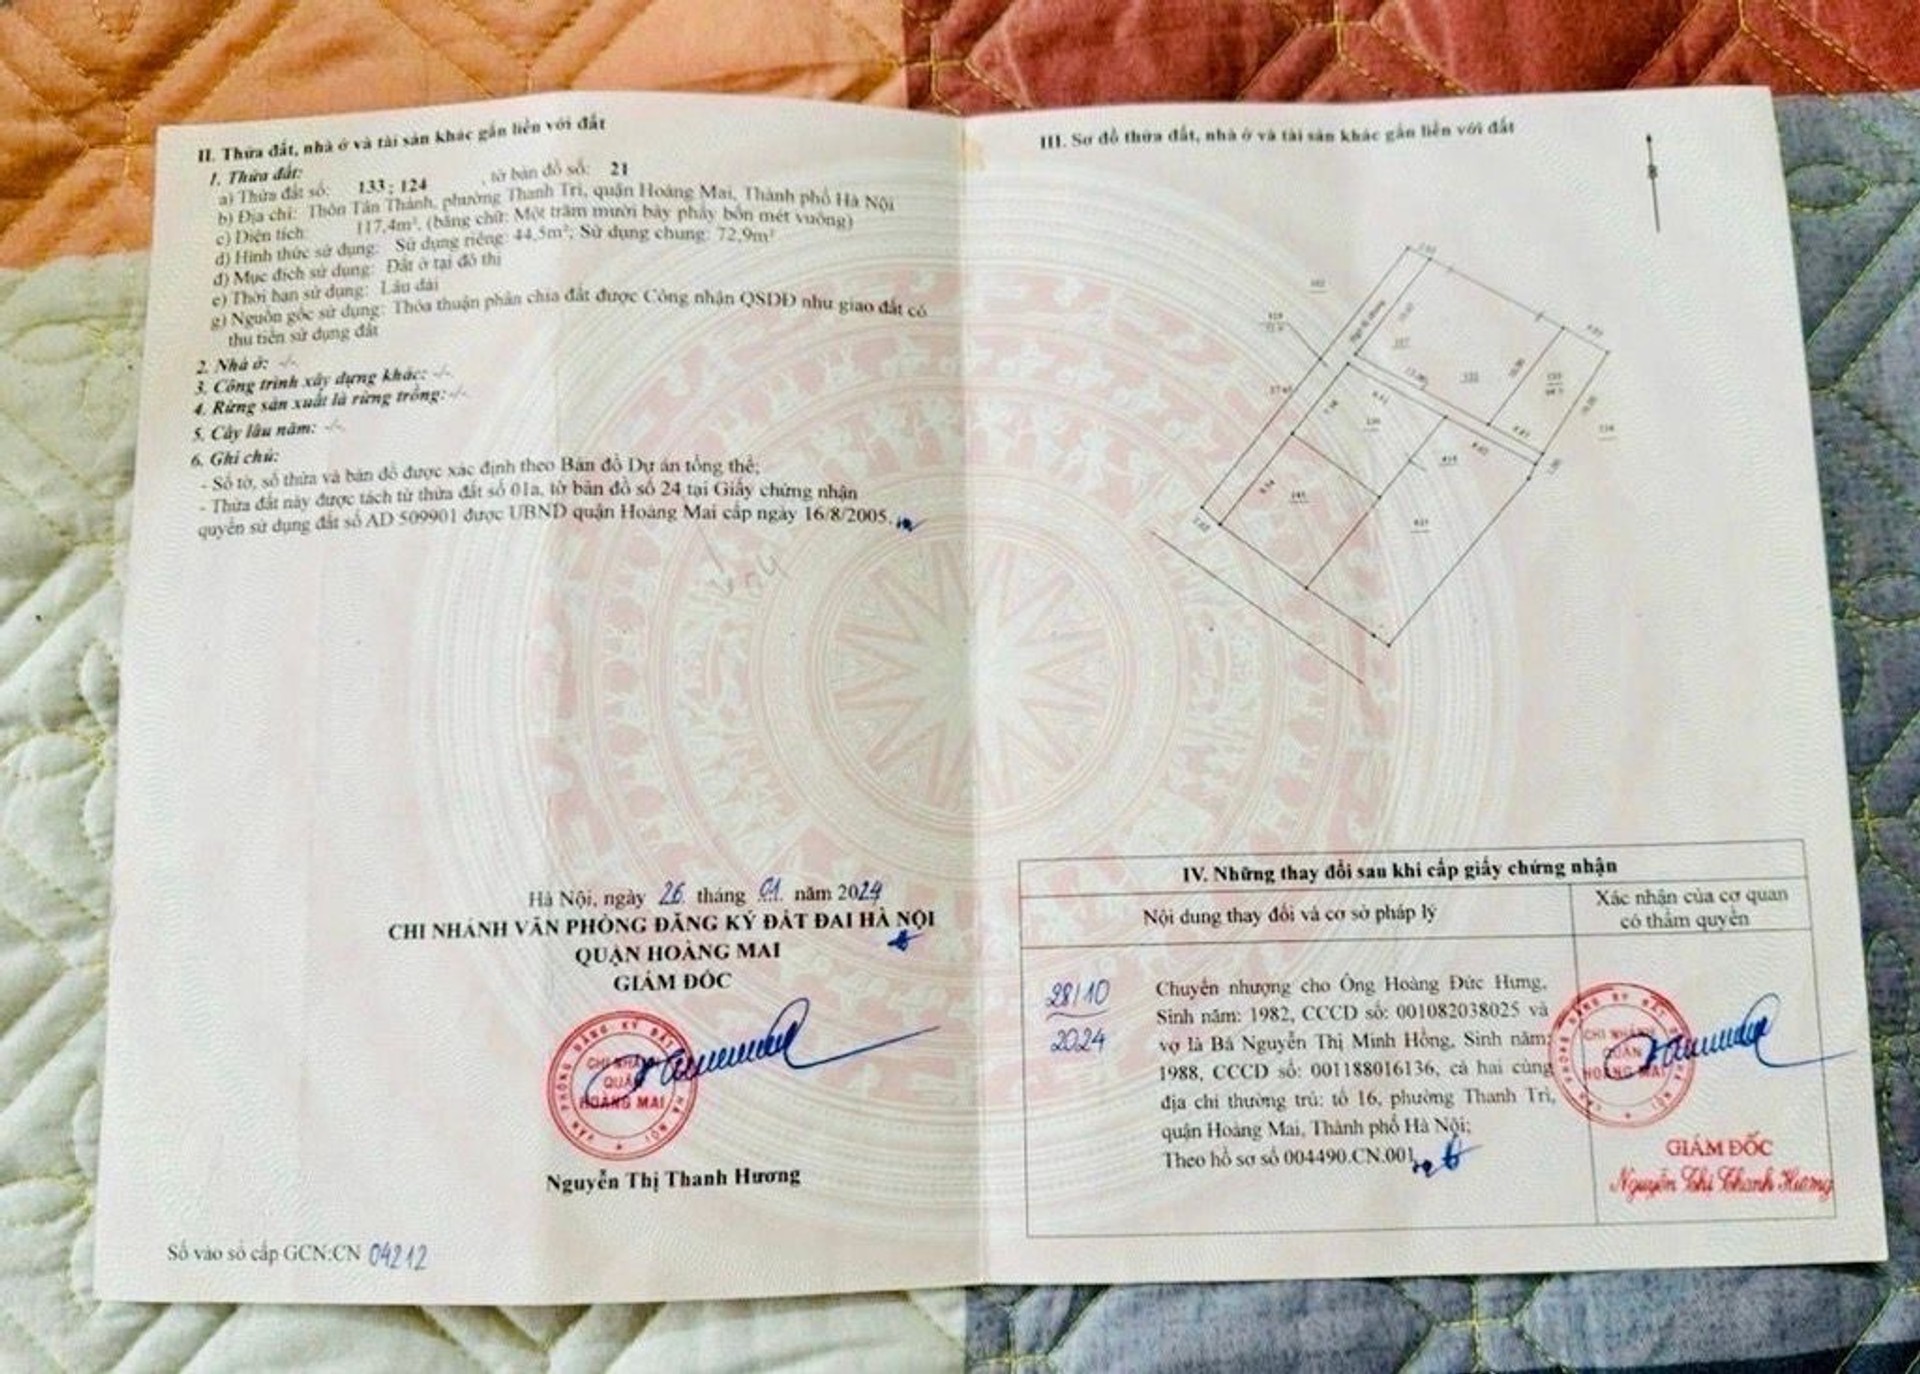 II. Thửa đất, nhà ở và tài sản khác gắn liền với đất
1. Thửa đất:
a) Thửa đất số: 133; 124 , tờ bản đồ số: 21
b) Địa chỉ: Thôn Tân Thành, phường Thanh Trì, quận Hoàng Mai, Thành phố Hà Nội
c) Diện tích: 117,4m², (bằng chữ: Một trăm mười bảy phẩy bốn mét vuông)
d) Hình thức sử dụng: Sử dụng riêng: 44,5m²; Sử dụng chung: 72,9m²
đ) Mục đích sử dụng: Đất ở tại đô thị
e) Thời hạn sử dụng: Lâu dài
g) Nguồn gốc sử dụng: Thỏa thuận phân chia đất được Công nhận QSDĐ như giao đất có
thu tiền sử dụng đất
2. Nhà ở: -/-
3. Công trình xây dựng khác: -/-
4. Rừng sản xuất là rừng trồng: -/-
5. Cây lâu năm: -/-
6. Ghi chú:
- Số tờ, số thửa và bản đồ được xác định theo Bản đồ Dự án tổng thể;
- Thửa đất này được tách từ thửa đất số 01a, tờ bản đồ số 24 tại Giấy chứng nhận
quyền sử dụng đất số AD 509901 được UBND quận Hoàng Mai cấp ngày 16/8/2005.
Hà Nội, ngày 26 tháng 01 năm 2024
CHI NHÁNH VĂN PHÒNG ĐĂNG KÝ ĐẤT ĐAI HÀ NỘI
QUẬN HOÀNG MAI
GIÁM ĐỐC
VĂN PHÒNG ĐĂNG KÝ ĐẤT HÀ NỘI
CHI NHÁNH
QUẬN
HOÀNG MAI
Nguyễn Thị Thanh Hương
Số vào sổ cấp GCN:CN 04212
III. Sơ đồ thửa đất, nhà ở và tài sản khác gắn liền với đất
B
IV. Những thay đổi sau khi cấp giấy chứng nhận
Nội dung thay đổi và cơ sở pháp lý
Xác nhận của cơ quan
có thẩm quyền
28/10
2024
Chuyển nhượng cho Ông Hoàng Đức Hưng,
Sinh năm: 1982, CCCD số: 001082038025 và
vợ là Bà Nguyễn Thị Minh Hồng, Sinh năm:
1988, CCCD số: 001188016136, cả hai cùng
địa chỉ thường trú: tổ 16, phường Thanh Trì,
quận Hoàng Mai, Thành phố Hà Nội;
Theo hồ sơ số 004490.CN.001
CHI NHÁNH
QUẬN
HOÀNG MAI
GIÁM ĐỐC
Nguyễn Thị Thanh Hương